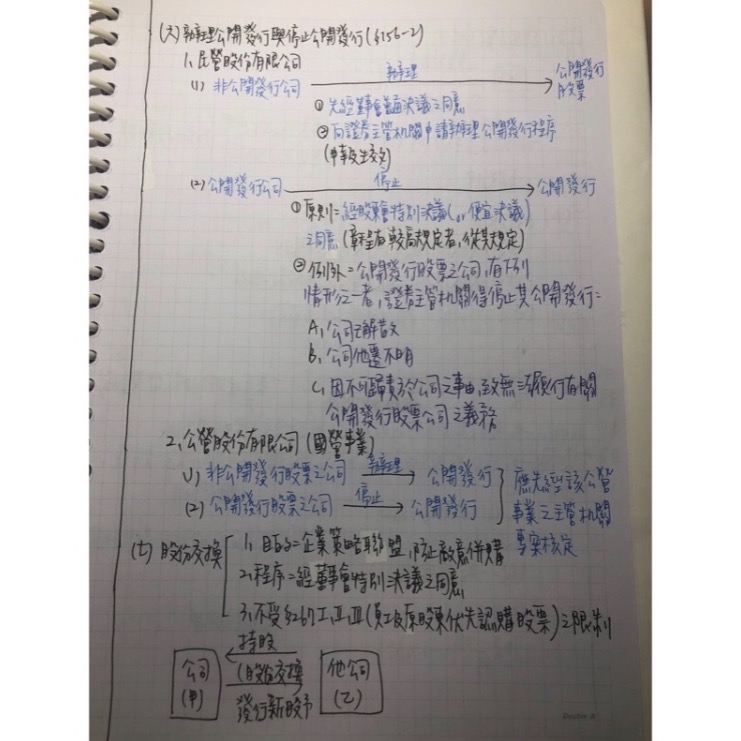 (六)辦理公開發行與停止公開發行(§156-2)
1、民營股份有限公司
(1) 非公開發行公司 辦理 公開發行
股票
① 先經董事會普通決議之同意
② 向證券主管機關申請辦理公開發行程序
(申報生效)
(2) 公開發行公司 停止 公開發行
① 原則=經股東會特別決議( 便宜決議)
之同意(章程有較高規定者,從其規定)
② 例外=公開發行股票之公司,有下列
情形之一者,證券主管機關得停止其公開發行=
A、公司已解散
B、公司他遷不明
C、因不可歸責於公司之事由,致無法履行有關
公開發行股票公司之義務
2、公營股份有限公司(國營事業)
(1) 非公開發行股票之公司 辦理 公開發行
(2) 公開發行股票之公司 停止 公開發行
應先經該公營
事業之主管機關
專案核定
(七) 股份交換
1、目的=企業策略聯盟,防止敵意併購
2、程序=經董事會特別決議之同意
3、不受§267Ⅰ、Ⅱ、Ⅲ(員工及原股東優先認購股票)之限制
持股
公司
(甲)
(股份交換
發行新股予
他公司
(乙)